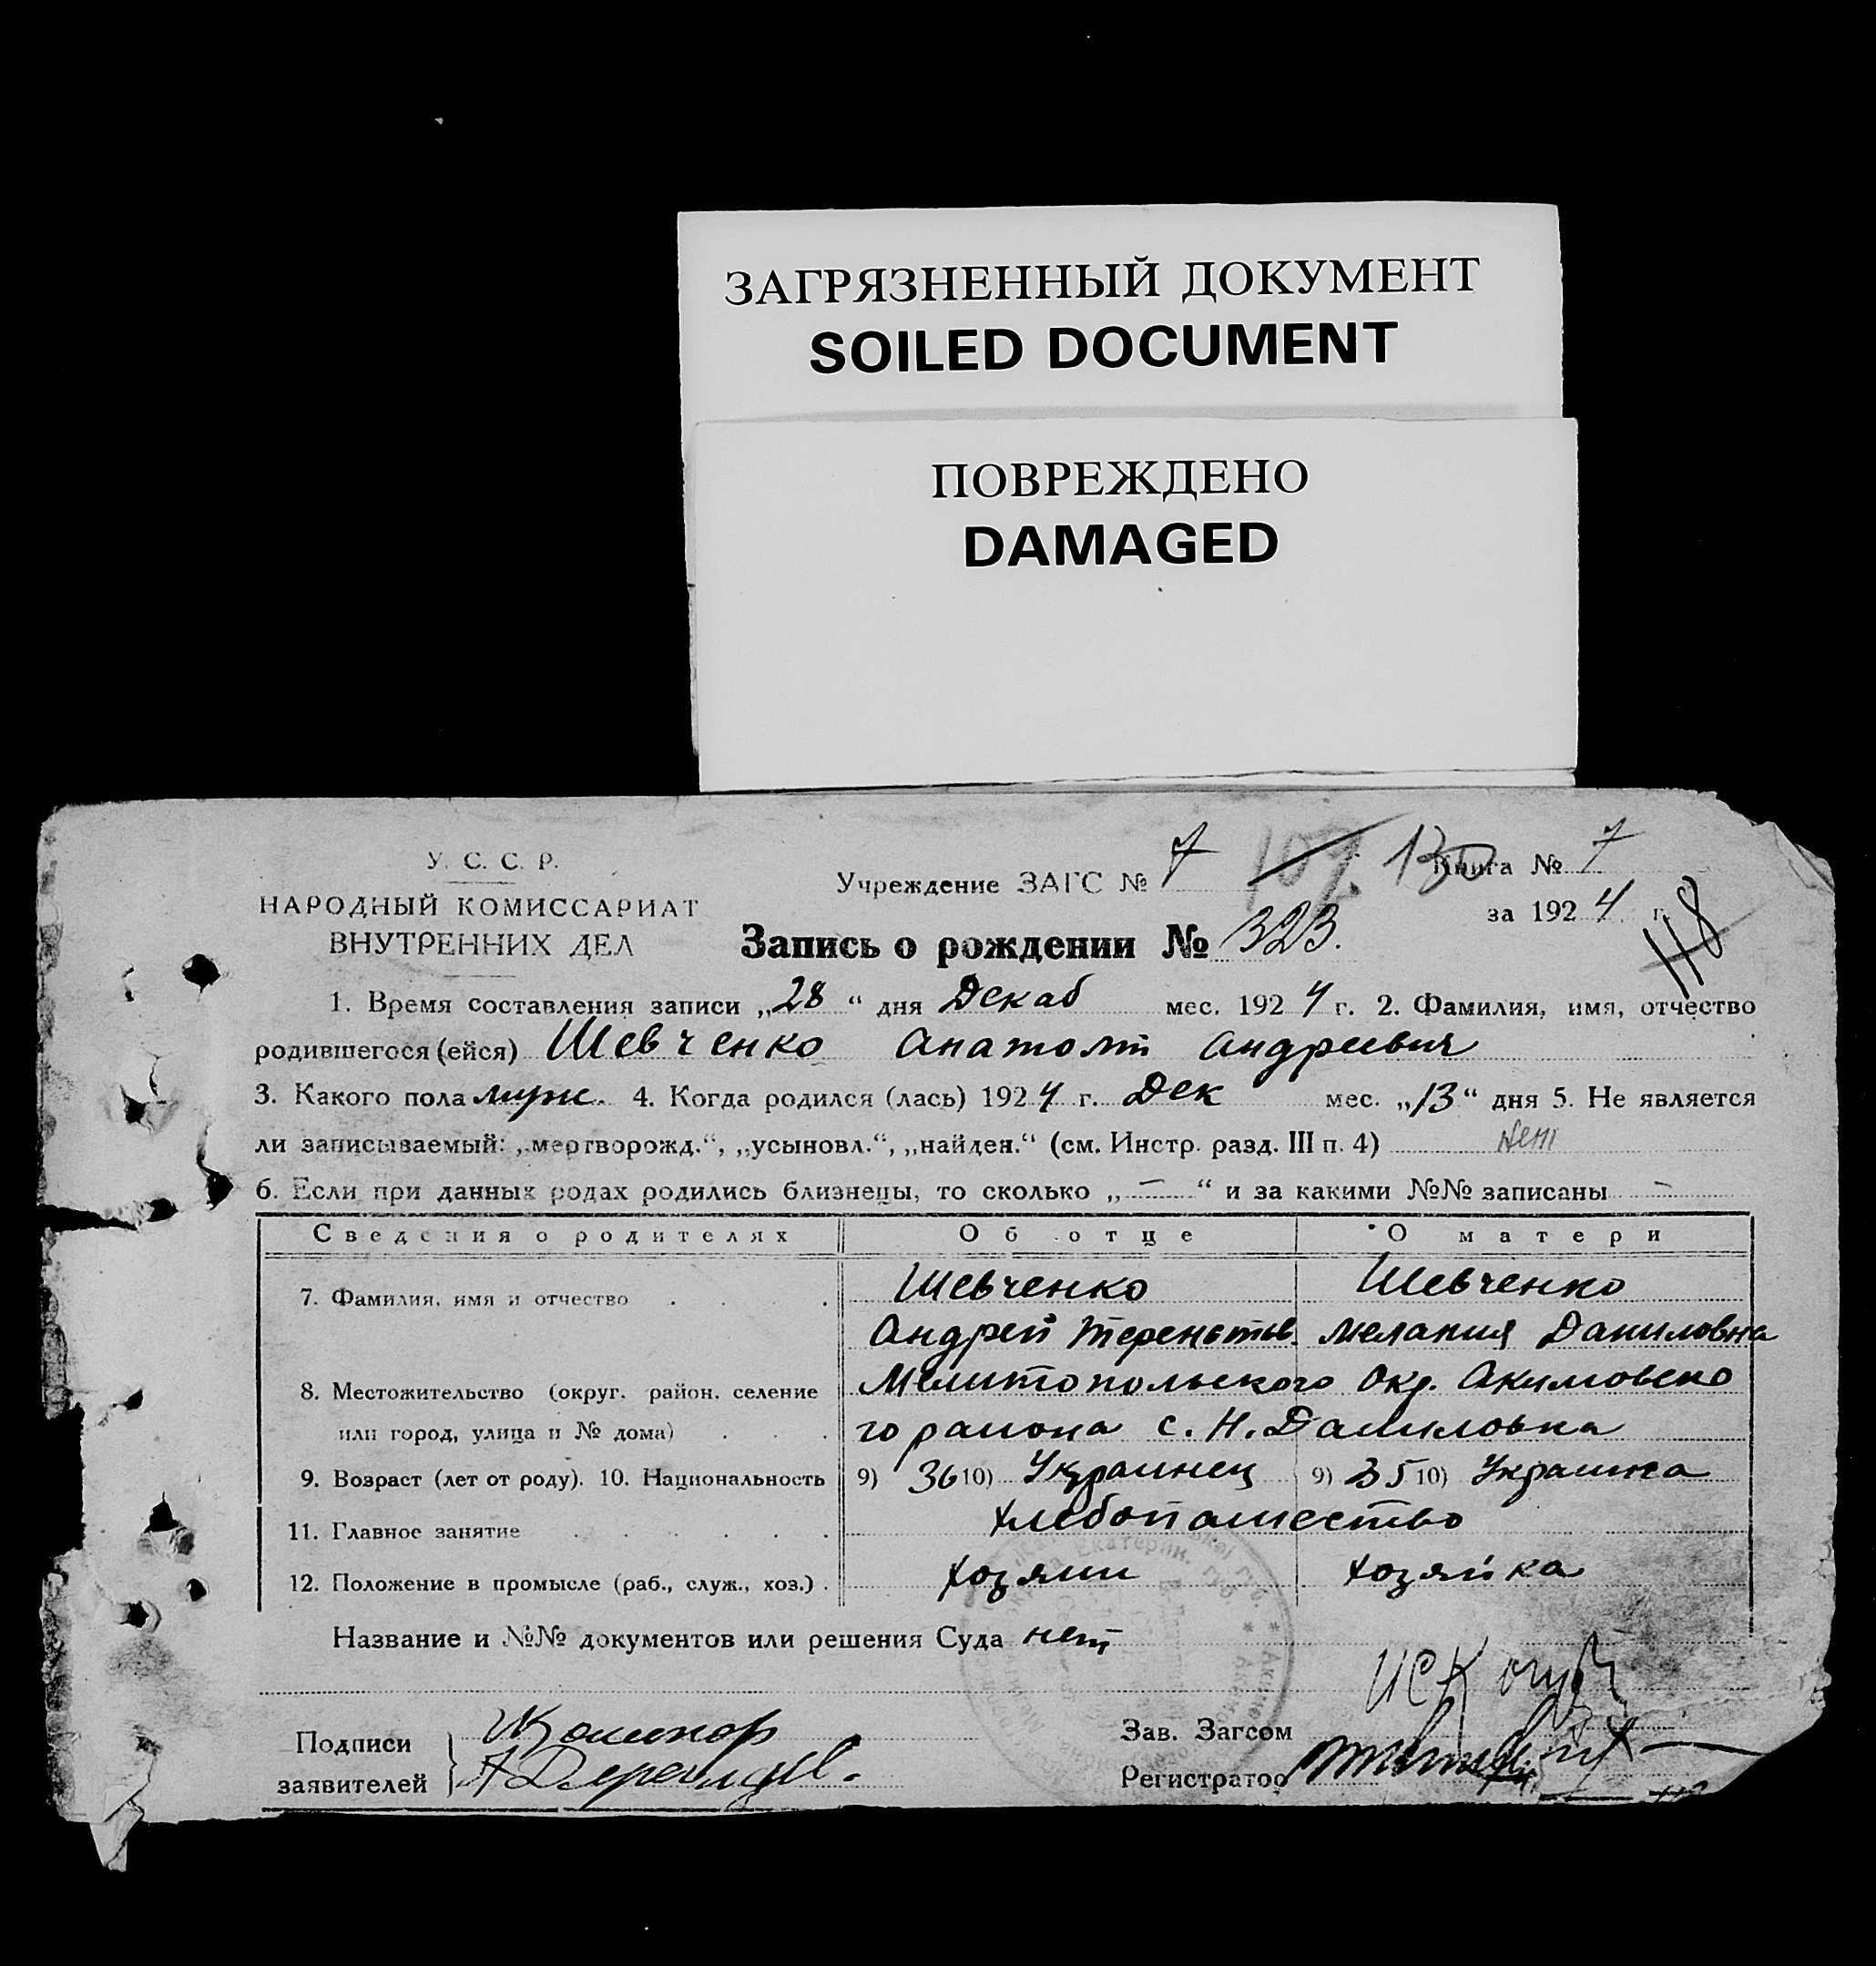 ЗАГРЯЗНЕННЫЙ ДОКУМЕНТ
SOILED DOCUMENT
ПОВРЕЖДЕНО
DAMAGED
У. С. С. Р.
НАРОДНЫЙ КОМИССАРИАТ
ВНУТРЕННИХ ДЕЛ
Учреждение ЗАГС № 7 107. 130 Книга № 7
за 1924 г.
118
Запись о рождении № 323.
1. Время составления записи „28“ дня Декаб мес. 1924 г. 2. Фамилия, имя, отчество
родившегося (ейся) Шевченко Анатолий Андреевич
3. Какого пола муж. 4. Когда родился (лась) 1924 г. Дек мес. „13“ дня 5. Не является
ли записываемый: „мертворожд.“, „усыновл.“, „найден.“ (см. Инстр. разд. III п. 4) нет
6. Если при данных родах родились близнецы, то сколько „—“ и за какими №№ записаны –
Сведения о родителях Об отце О матери
7. Фамилия, имя и отчество . . . Шевченко Шевченко
Андрей Терентьев. Мелания Даниловна
8. Местожительство (округ, район, селение Мелитопольского Окр. Акимовско
или город, улица и № дома) . . . го района с. Н. Даниловка
9. Возраст (лет от роду). 10. Национальность 9) 36 10) Украинец 9) 35 10) Украинка
11. Главное занятие . . . . . . Хлебопашество
12. Положение в промысле (раб., служ., хоз.) . хозяин хозяйка
Название и №№ документов или решения Суда нет
Подписи
заявителей
Зав. Загсом
Регистратор